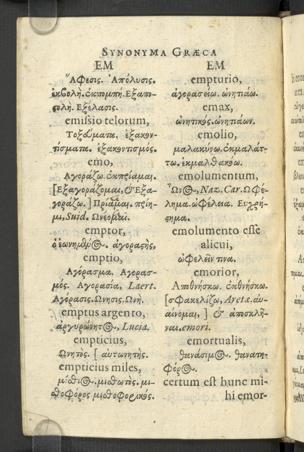 SYNONYMA GRÆCA
EM
Ἄφεσις. Ἀπόλυσις.
ἐκβολή. ἐκπομπή. Ἐξαπο-
στολή. Ἐξέλασις.
emissio telorum,
Τοξεύματα. ἐξακον-
τίσματα. ἐξακοντισμός.
emo,
Ἀγοράζω. ἐκπρίαμαι.
[Ἐξαγοράζομαι, & Ἐξα-
γοράζω.] Πρίαμαι.
Suid. Ὠνέομαι.
emptor,
ἀγοραστής.
emptio,
Ἀγόρασμα. Ἀγορασ-
μός. Ἀγορασία. Laert.
Ἀγόρασις. Ὤνησις. Ὠνή.
emptus argento,
ἀργυρώνητος. Lucia.
empticius,
Ὠνητός. [αὐτωνητής.
empticius miles,
μισθωτός. μι-
σθοφόρος μισθοφορικός.
EM
empturio,
ἀγορασείω. ὠνητιάω.
emax,
ὠνητικός. ὠνητιάων.
emolio,
μαλακύνω. ἐκμαλάτ-
τω. ἐκμαλθακόω.
emolumentum,
Naz. Car. Ὠφέ-
λημα. ὠφέλεια. Εὐχρή-
στημα.
emolumento esse
alicui,
ὠφελεῖν τινα.
emorior,
Ἀποθνήσκω. ἐκθνήσκω.
[σφακελίζω, Aretæ. αὐ-
αίνομαι,] & ἀποσκλῆ-
ναι. emori.
emortualis,
θανάσιμος. θανατη-
φόρος.
certum est hunc mi-
hi emor-